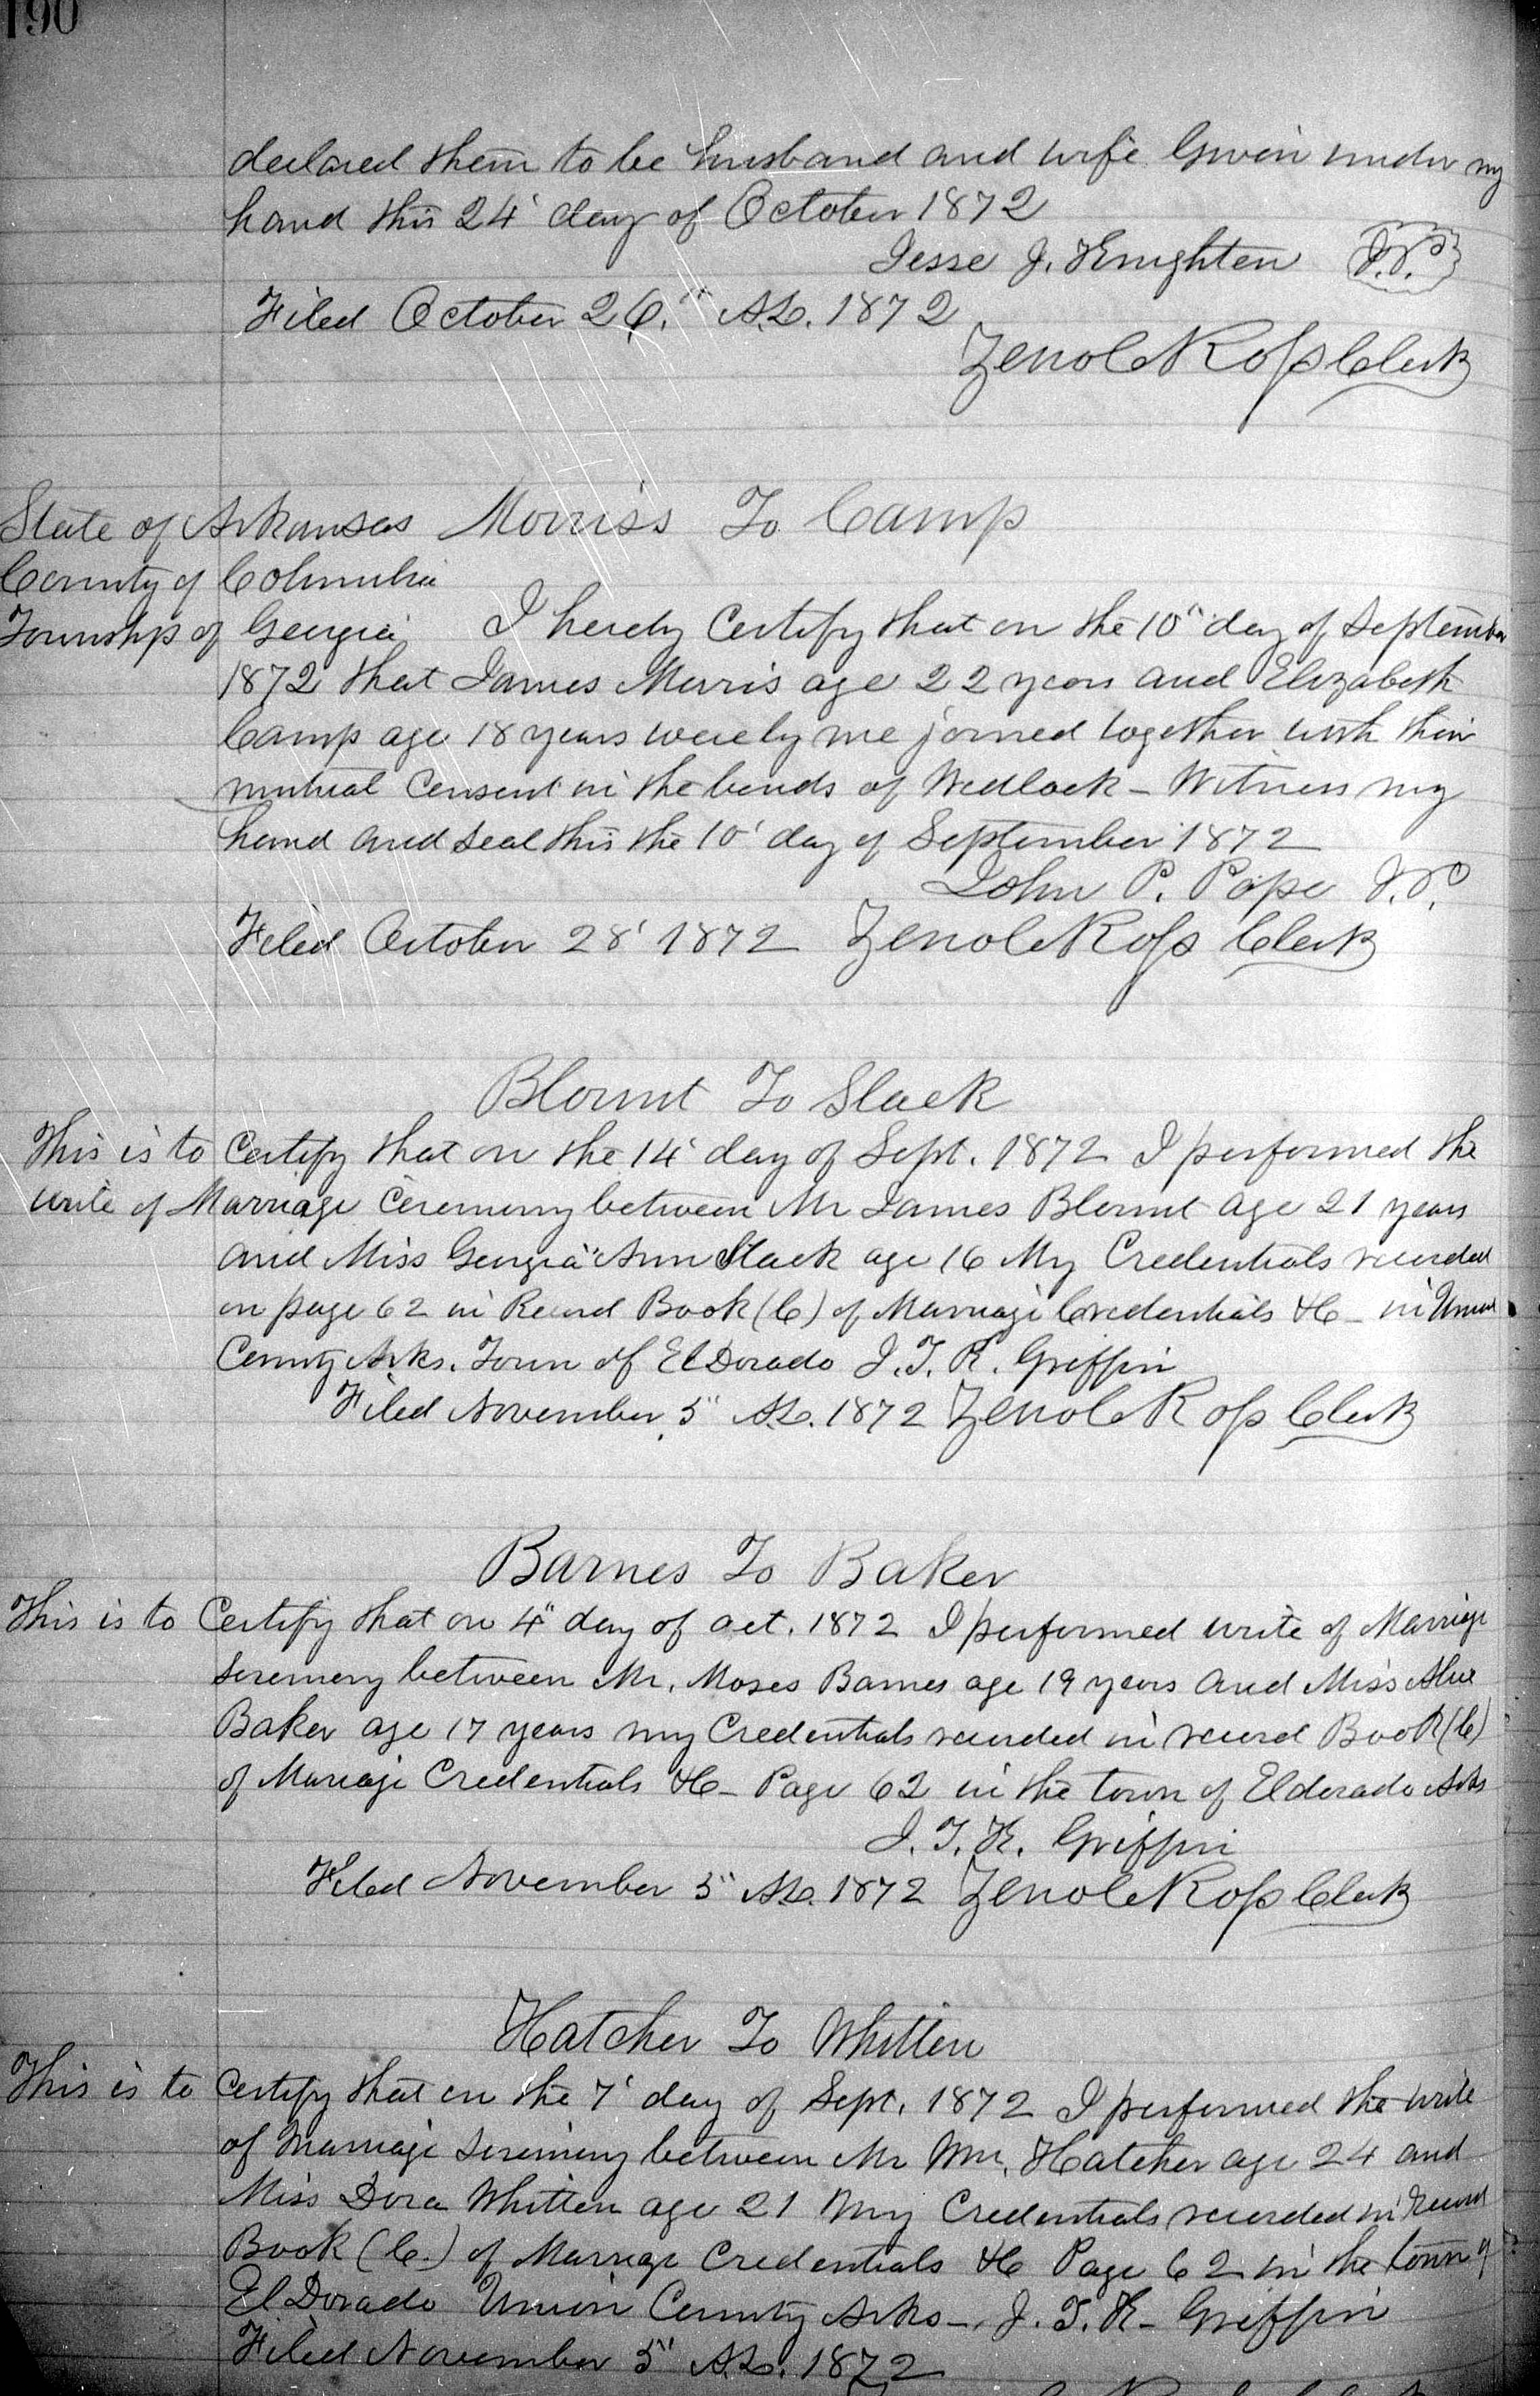 190
declared them to be husband and wife Given under my
hand this 24' day of October 1872
Jesse J. Knighten J.P.
Filed October 26." A.D. 1872
Zeno C Ross Clerk
Morriss To Camp
State of Arkansas
County of Columbia
Township of Georgia I hereby Certify that on the 10" day of September
1872 that James Morris age 22 years and Elizabeth
Camp age 18 years were by me joined together with their
mutual Consent in the bonds of Wedlock - Witness my
hand and seal this the 10' day of September 1872
John P. Pope J.P.
Filed October 28' 1872 Zeno C Ross Clerk
Blount To Slack
This is to Certify that on the 14' day of Sept. 1872 I performed the
write of Marriage Ceremony between Mr James Blount age 21 years
and Miss Georgia Ann Slack age 16 My Credentials recorded
on page 62 in Record Book (C) of Marriage Credentials &C - in Union
County Arks. Town of El Dorado J. T. K. Griffin
Filed November 5" A.D. 1872 Zeno C Ross Clerk
Barnes To Baker
This is to Certify that on 4" day of oct. 1872 I performed write of Marriage
seremony between Mr. Moses Barnes age 19 years and Miss
Baker age 17 years my Credentials recorded in record Book (C)
of Marriage Credentials &C - Page 62 in the town of Eldorado Arks
J. T. K. Griffin
Filed November 5" A.D. 1872 Zeno C Ross Clerk
Hatcher To Whitten
This is to Certify that on the 7' day of Sept. 1872 I performed the write
of Marriage seremony between Mr Wm. Hatcher age 24 and
Miss Dora Whitten age 21 My Credentials recorded in Record
Book (C.) of Marriage Credentials &C Page 62 in the town of
El Dorado Union County Arks - J. T. K - Griffin
Filed November 5" A.D. 1872